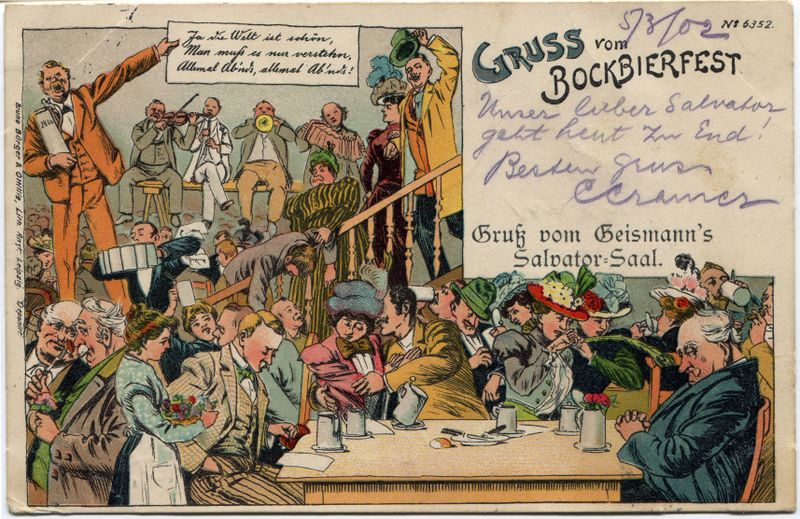 Ja die Welt ist schön,
Man muß es nur verstehn,
Allemal Ab'nds, allemal Ab'nds!
5/3/02
No 6352.
GRUSS vom
BOCKBIERFEST
Unser lieber Salvator
geht heut zu End!
Besten Gruss
C Cramer
Gruß vom Geismann's
Salvator-Saal.
Bruno Bürger & Ottillie, Lith. Anst. Leipzig.